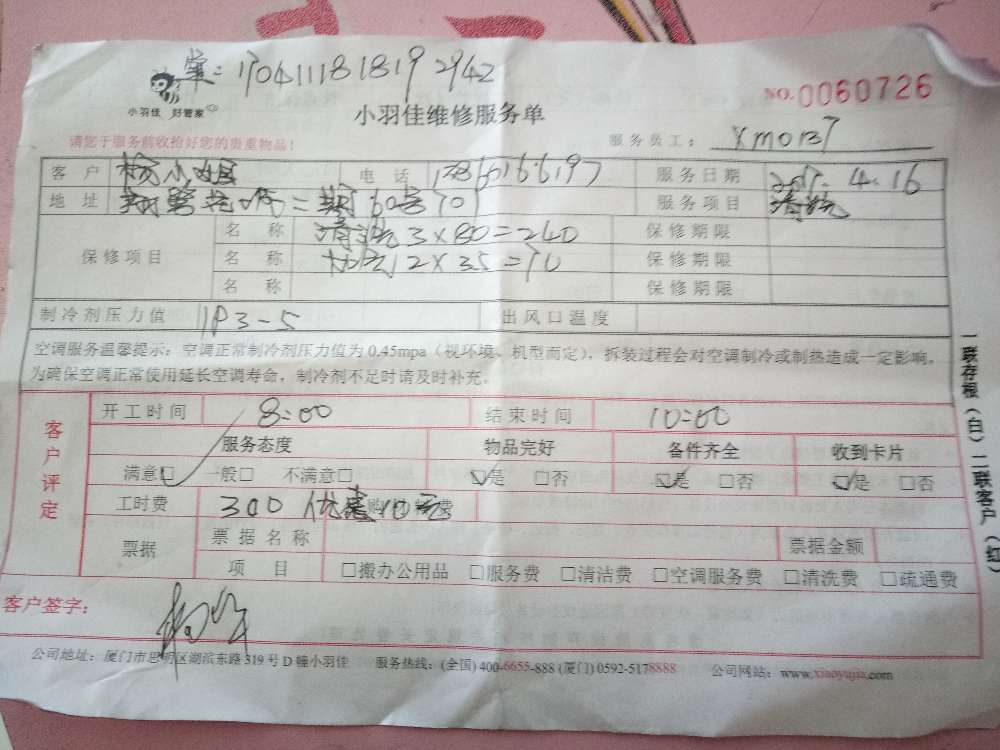 单：170411181819 2942
小羽佳 好管家
NO.0060726
小羽佳维修服务单
请您于服务前收拾好您的贵重物品！
服务员工： XM0137
客户 杨小姐 电话 服务日期 2017.4.16
地址 二期60号701 服务项目 清洗
保修项目
名称 清洗3×80=240 保修期限
名称 加氟2×35=70 保修期限
名称 保修期限
制冷剂压力值 1P3-5 出风口温度
空调服务温馨提示：空调正常制冷剂压力值为0.45mpa（视环境、机型而定），拆装过程会对空调制冷或制热造成一定影响，
为确保空调正常使用延长空调寿命，制冷剂不足时请及时补充。
客户评定
开工时间 8:00 结束时间 10:00
服务态度 物品完好 备件齐全 收到卡片
满意□ 一般□ 不满意□ □是 □否 □是 □否 □是 □否
工时费 300 优惠10元 费
票据 票据名称 票据金额
项目 □搬办公用品 □服务费 □清洁费 □空调服务费 □清洗费 □疏通费
客户签字：
公司地址：厦门市思明区湖滨东路319号D幢小羽佳 服务热线：(全国) 400-6655-888 (厦门) 0592-5178888 公司网站：www.xiaoyujia.com
一联存根（白）二联客户（红）